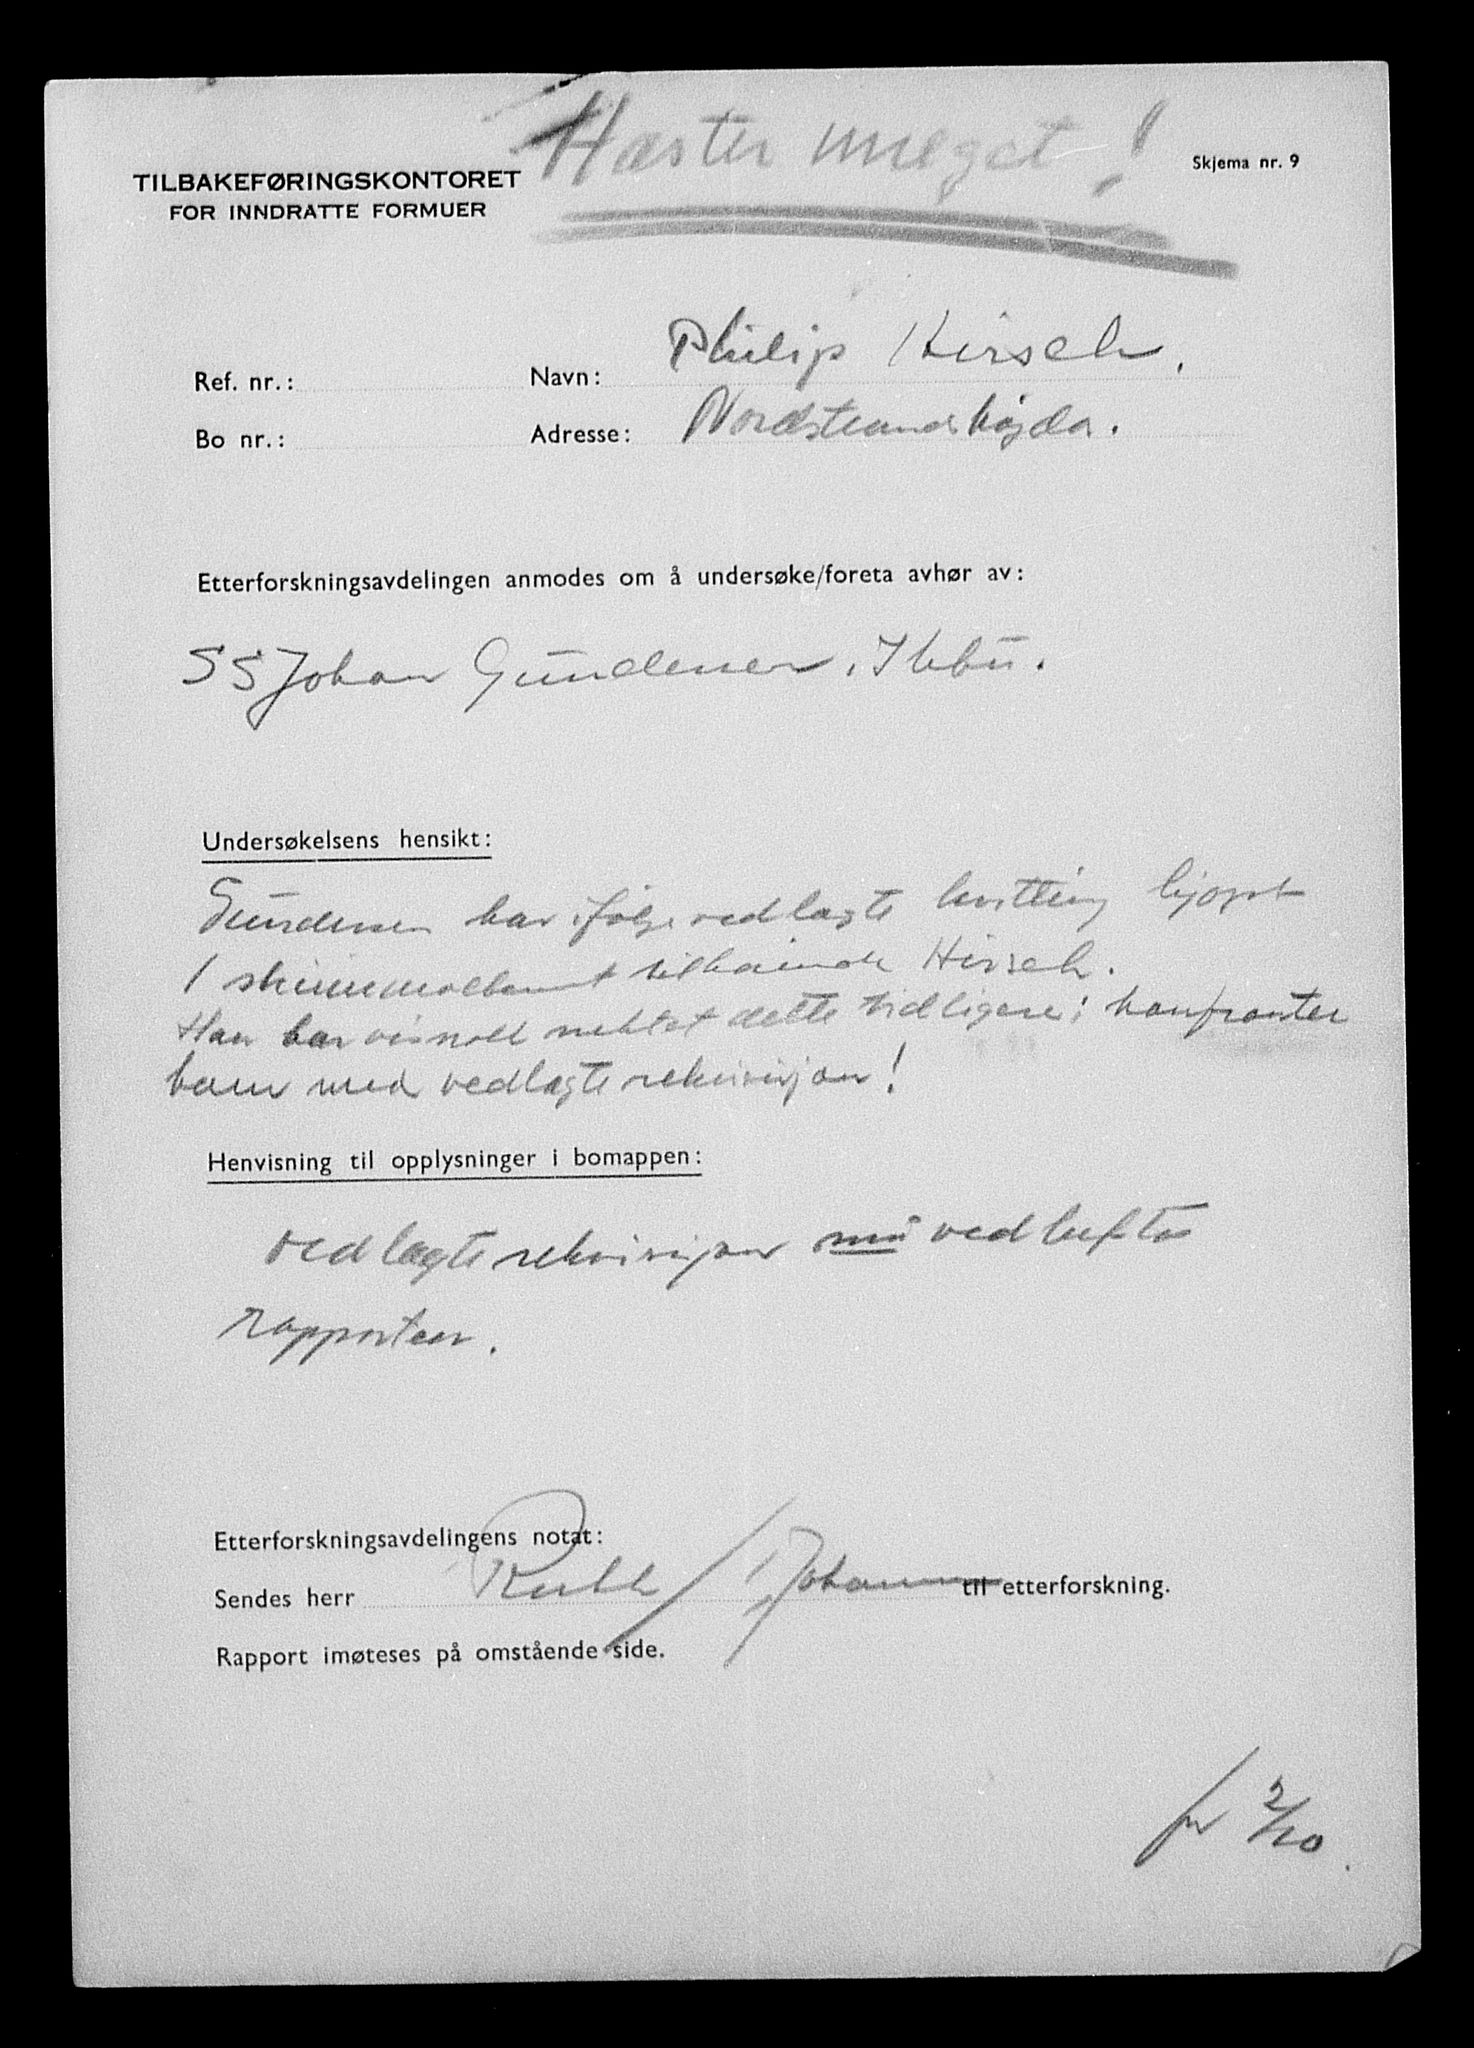 Haster meget!
Skjema nr. 9
TILBAKEFØRINGSKONTORET
FOR INNDRATTE FORMUER
Ref. nr.: Navn: Philip Hirsch.
Bo nr.: Adresse: Nordstrandshøgda.
Etterforskningsavdelingen anmodes om å undersøke/foreta avhør av:
SS Johan Gundersen, Ilebu.
Undersøkelsens hensikt:
Gundersen har ifølge vedlagte kvittering kjøpt
1 skinnmøblement tilhørende Hirsch.
Han har visnok nektet dette tidligere; konfronter
ham med vedlagte rekvisisjon!
Henvisning til opplysninger i bomappen:
vedlagte rekvisisjon må vedheftes
rapporten.
Etterforskningsavdelingens notat:
Sendes herr / Johan til etterforskning.
Rapport imøteses på omstående side.
2/10.